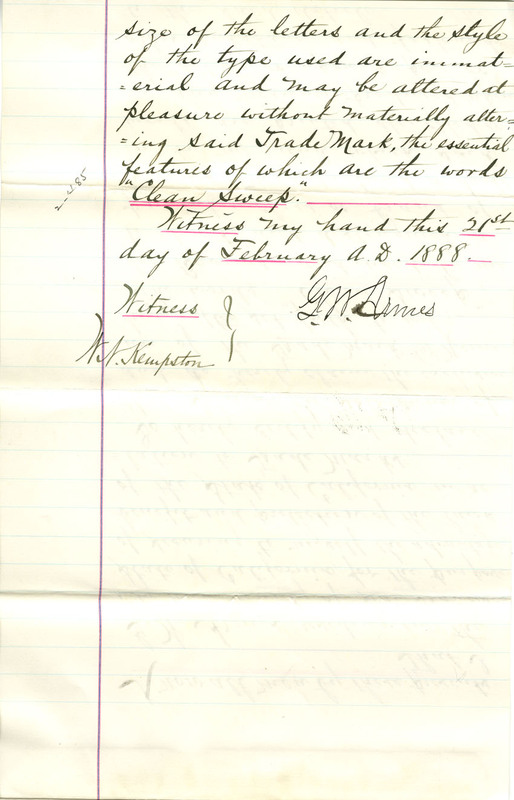 size of the letters and the style
of the type used are immat=
=erial and may be altered at
pleasure without materially alter=
=ing said Trade Mark, the essential
features of which are the words
"Clean Sweep."
Witness my hand this 21st
day of February A.D. 1888.
Witness
G.W. Armes
W.N. Kempston
2-485